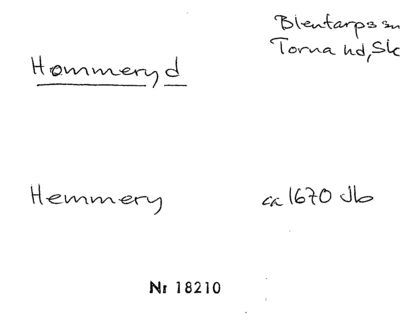 Blentarps sn
Torna hd, Sk
Hommeryd
Hemmery ca 1670 Jb
Nr 18210